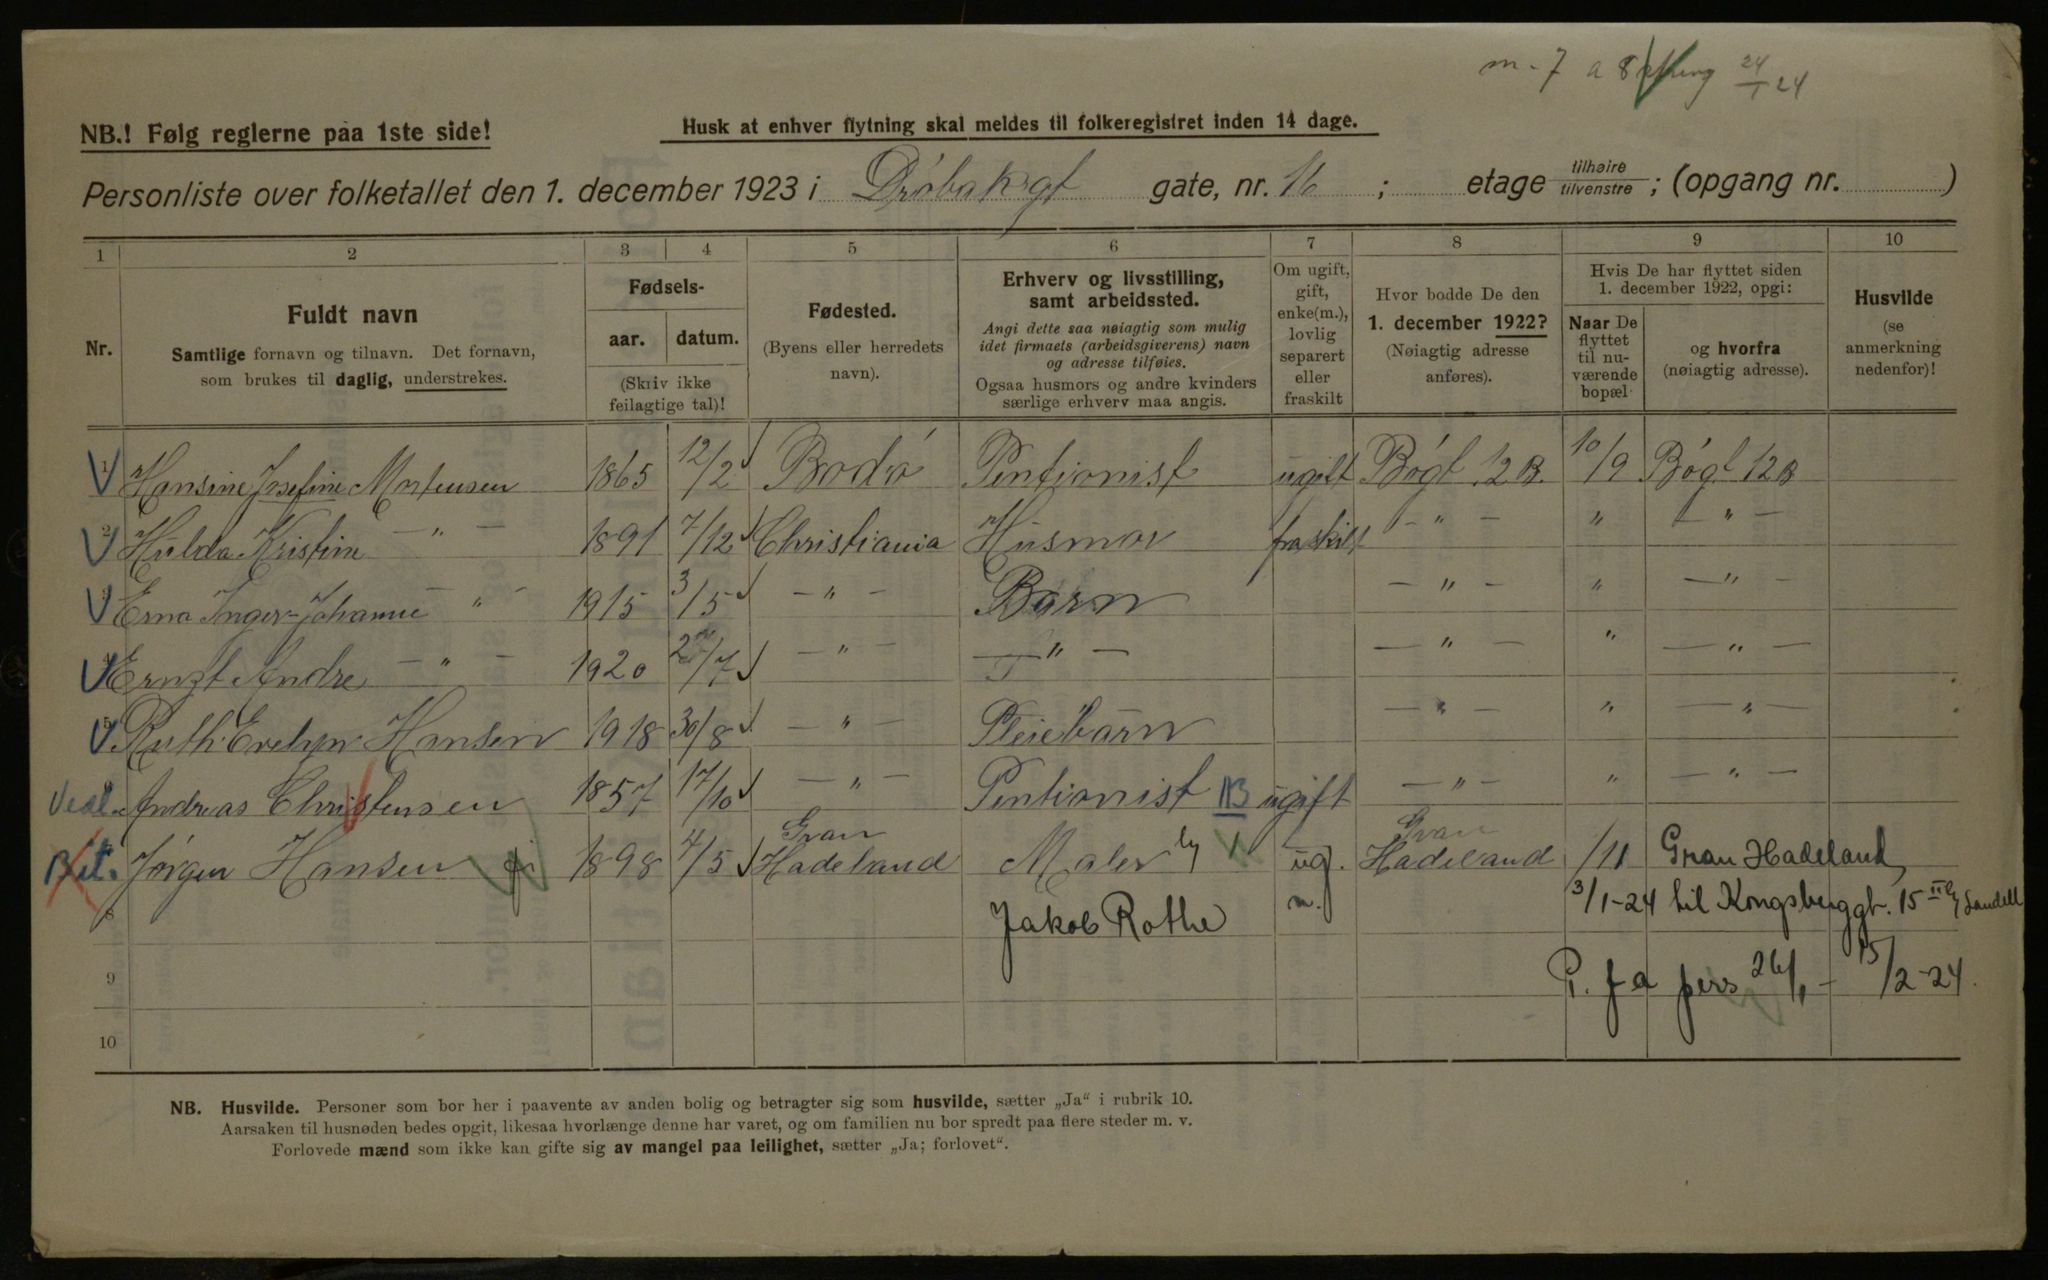 m-7 a 8 24/1 24
NB.! Følg reglerne paa 1ste side!
Husk at enhver flytning skal meldes til folkeregistret inden 14 dage.
Personliste over folketallet den 1. december 1923 i Drøbakgt gate, nr. 16 ; etage tilhøire tilvenstre ; (opgang nr. )
1 2 3 4 5 6 7 8 9 10
Nr.
Fuldt navn
Samtlige fornavn og tilnavn. Det fornavn,
som brukes til daglig, understrekes.
Fødsels-
aar. datum.
(Skriv ikke
feilagtige tal)!
Fødested.
(Byens eller herredets
navn).
Erhverv og livsstilling,
samt arbeidssted.
Angi dette saa nøiagtig som mulig
idet firmaets (arbeidsgiverens) navn
og adresse tilføies.
Ogsaa husmors og andre kvinders
særlige erhverv maa angis.
Om ugift,
gift,
enke(m.),
lovlig
separert
eller
fraskilt
Hvor bodde De den
1. december 1922?
(Nøiagtig adresse
anføres).
Hvis De har flyttet siden
1. december 1922, opgi:
Naar De
flyttet
til nu-
værende
bopæl
og hvorfra
(nøiagtig adresse).
Husvilde
(se
anmerkning
nedenfor)!
1 Hansine Josefine Mortensen 1865 12/2 Bodø Pentionist ugift Bøgt 12 B. 10/9 Bøgt 12 B
2 Hulda Kristine — " — 1891 7/12 Christiania Husmor fraskilt — " — " — " —
3 Erna Inger-Johanne " — 1915 3/5 — " — Barn — " — " — " —
4 Ernzt Andre — " — 1920 /7 — " — — " — — " — " — " —
5 Ruth Evelyn Hansen 1918 30/8 — " — Pleiebarn — " — " — " —
Andreas Christensen 1857 17/10 — " — Pentionist ugift — " — " — " —
Jörgen Hansen 1898 4/5 Gran Hadeland Maler ug. Gran Hadeland /11 Gran Hadeland
8 Jakob Rothe m. 3/1-24 til Kongsberggt. 15 II Sandell
9 P. f a pers 26/1 - 15/2-24.
10
NB. Husvilde. Personer som bor her i paavente av anden bolig og betragter sig som husvilde, sætter „Ja" i rubrik 10.
Aarsaken til husnøden bedes opgit, likesaa hvorlænge denne har varet, og om familien nu bor spredt paa flere steder m. v.
Forlovede mænd som ikke kan gifte sig av mangel paa leilighet, sætter „Ja; forlovet".